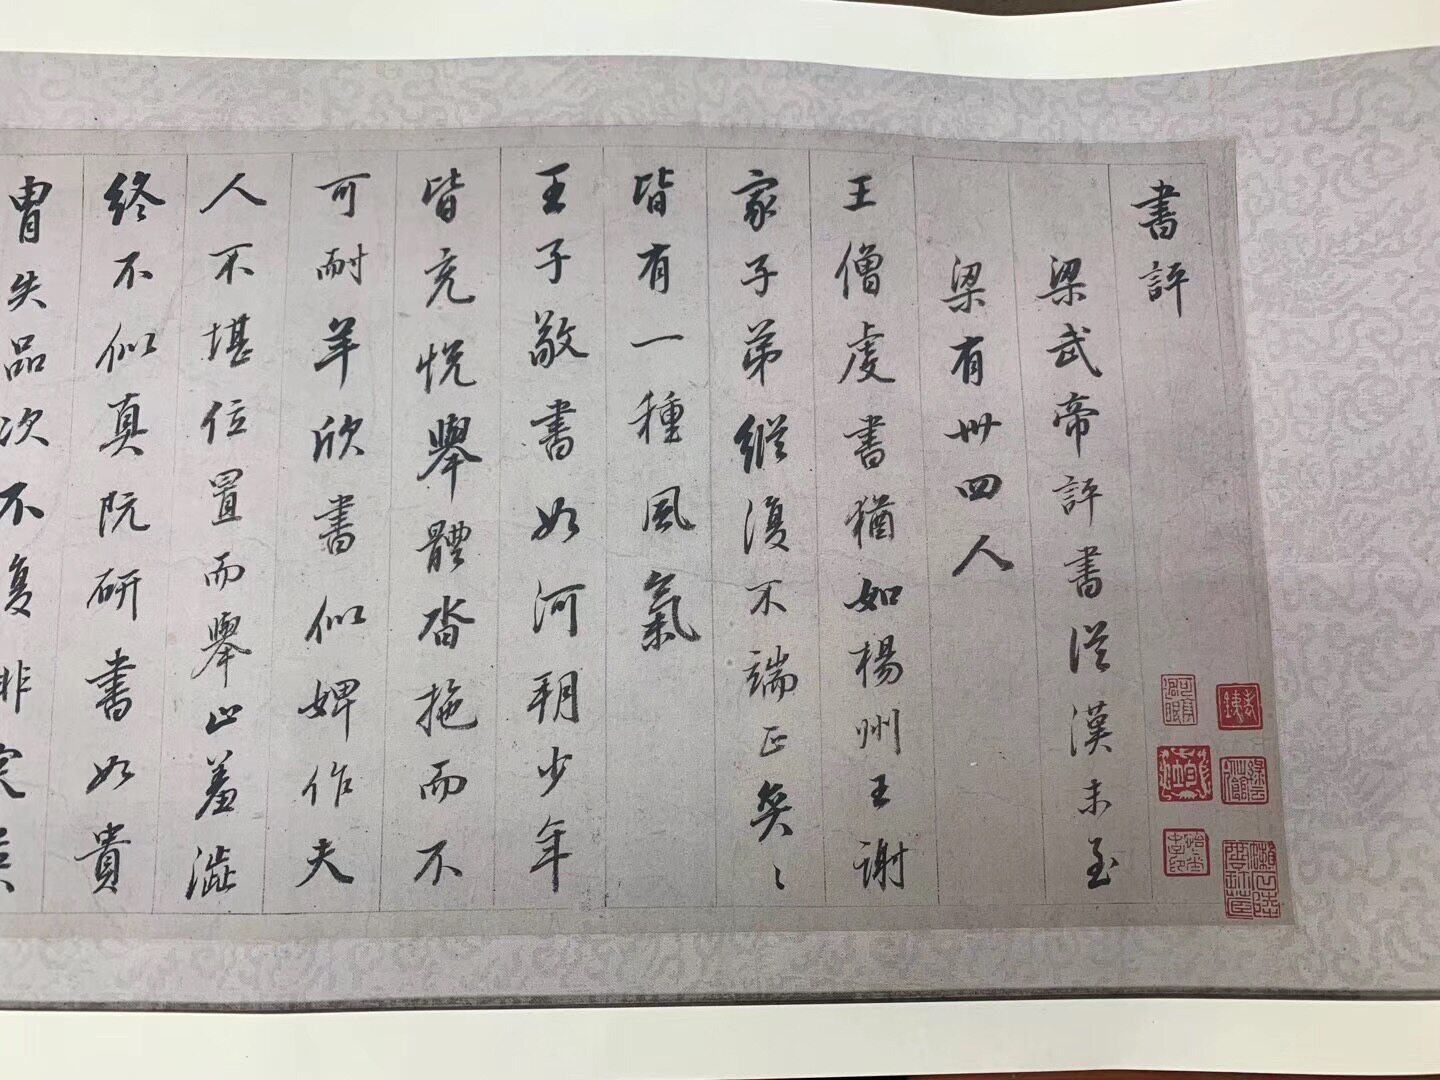 書評
梁武帝評書從漢末至
梁有卅四人
王僧虔書猶如楊州王謝
家子弟縱復不端正奕〻
皆有一種風氣
王子敬書如河朔少年
皆充悅舉體沓拖而不
可耐羊欣書似婢作夫
人不堪位置而舉止羞澁
終不似真阮研書如貴
胄失品次不复非